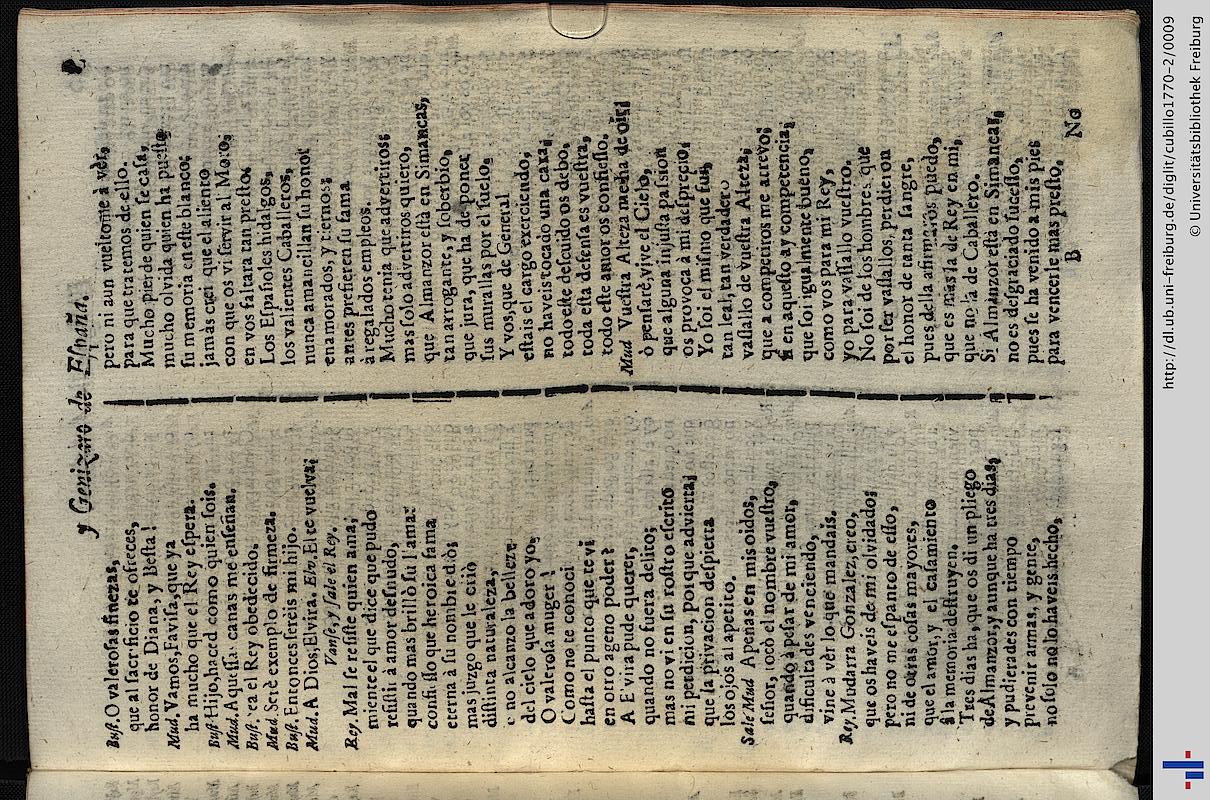 y Genizaro de España.
Bust. O valerosas finezas,
que al sacrificio te ofreces,
honor de Diana, y Besta!
Mud. Vamos, Favisa, que ya
ha mucho que el Rey espera.
Bust. Hijo, haced como quien sois.
Mud. Aquessas canas me enseñan.
Bust. Sea el Rey obedecido.
Mud. Serè exemplo de firmeza.
Bust. Entonces serèis mi hijo.
Mud. A Dios, Elvira. Elv. El te vuelva.
Vanse, y sale el Rey.
Rey. Mal se resiste quien ama,
miente el que dice que pudo
resistir à amor desnudo,
quando mas brillò su llama:
confiesso que heroica fama,
eterna à su nombre diò;
mas juzgo que le criò
distinta naturaleza,
no alcanzo la belleza
del cielo que adoro yo.
O valerosa muger!
Como no te conoci
hasta el punto que te vì
en otro ageno poder?
A Elvira pude querer,
quando no fuera delito;
mas no vi en su rostro escrito
mi perdicion, porque advierta,
que la privacion despierta
los ojos al apetito.
Sale Mud. Apenas en mis oidos,
señor, tocò el nombre vuestro,
quando à pesar de mi amor,
dificultades venciendo,
vine à vèr lo que mandais.
Rey. Mudarra Gonzalez, creo,
que os haveis de mi olvidado;
pero no me espanto de esso,
ni de otras cosas mayores,
que el amor, y el casamiento
à la memoria destruyen.
Tres dias ha, que os di un pliego
de Almanzor, y aunque ha tres dias,
y pudierades con tiempo
prevenir armas, y gente,
no solo no lo haveis hecho,
2
pero ni aun vuelto me à vèr,
para que tratemos de ello.
Mucho pierde quien se casa,
mucho olvida quien ha puesto
su memoria en este blanco;
jamas crei que el aliento
con que os vi servir al Moro,
en vos faltara tan presto:
Los Españoles hidalgos,
los valientes Caballeros,
nunca amancillan su honor
enamorados, y tiernos;
antes prefieren su fama
à regalados empleos.
Mucho tenia que advertiros;
mas solo advertiros quiero,
que Almanzor està en Simancas,
tan arrogante, y soberbio,
que jura, que ha de poner
sus murallas por el suelo.
Y vos, que de General
estais el cargo exerciendo,
no haveis tocado una caxa;
todo este descuido os debo,
toda esta defensa es vuestra,
todo este amor os confiesso.
Mud. Vuestra Alteza me ha de oir;
ò pensarè, vive el Cielo,
que alguna injusta passion
os provoca à mi desprecio:
Yo soi el mismo que fui,
tan leal, tan verdadero
vassallo de vuestra Alteza;
que a competiros me atrevo;
si en aquesto ay competencia,
que soi igualmente bueno,
como vos para mi Rey,
yo para vassallo vuestro.
No soi de los hombres que
por ser vassallos, perdieron
el honor de tanta sangre,
pues della afirmaros puedo,
que es mas la de Rey en mi,
que no la de Caballero.
Si Almanzor està en Simancas,
no es desgraciado sucesso,
pues se ha venido à mis pies
para vencerle mas presto.
B
No
http://dl.ub.uni-freiburg.de/diglit/cubillo1770-2/0009
© Universitätsbibliothek Freiburg